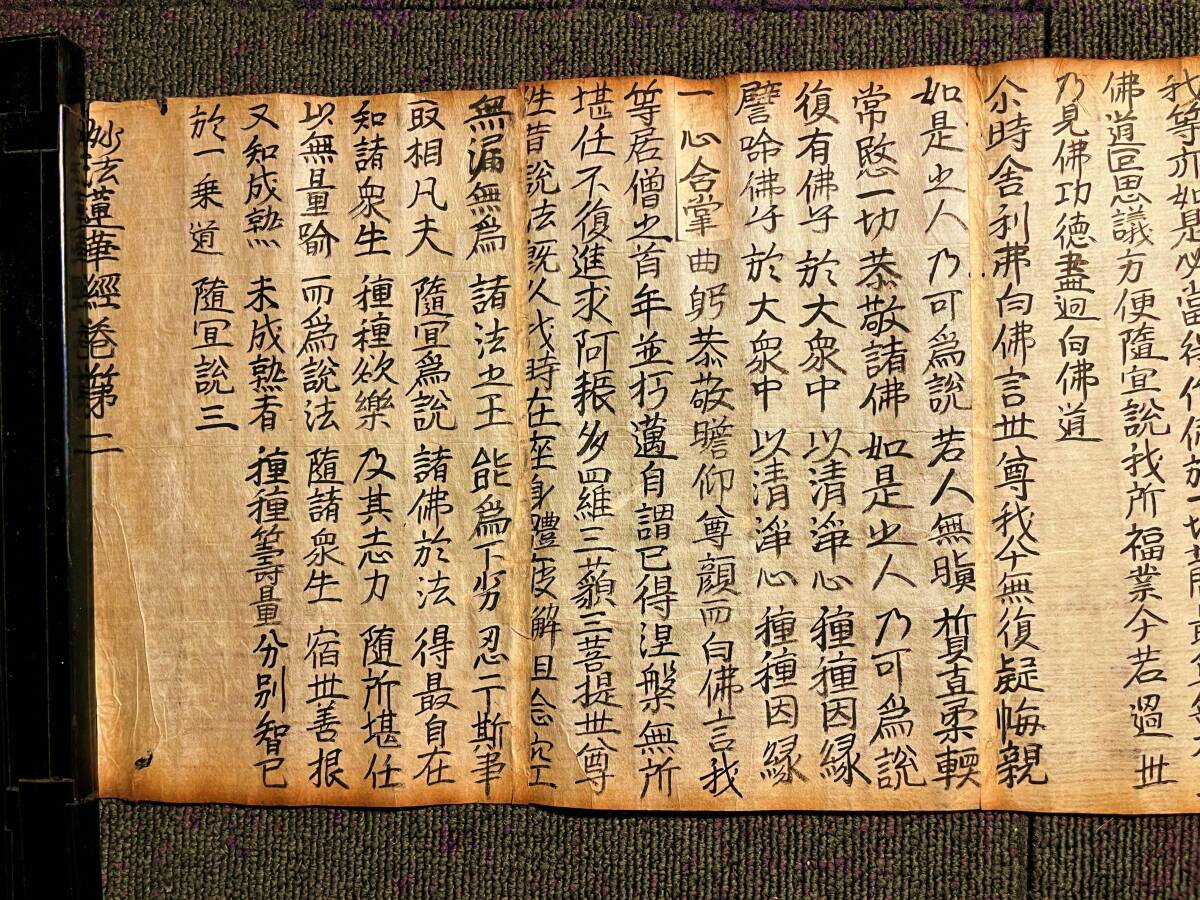 我等亦如是必當得作佛於一切
佛道叵思議方便隨宜說我所福業今若過世
乃見佛功德盡迴向佛道
尒時舍利弗白佛言世尊我今無復疑悔親
如是之人 乃可為說 若人無瞋 質直柔軟
常愍一切 恭敬諸佛 如是之人 乃可為說
復有佛子 於大衆中 以清淨心 種種因緣
譬喻佛子 於大衆中 以清淨心 種種因緣
一心合掌曲躬恭敬瞻仰尊顏而白佛言我
等居僧之首年並朽邁自謂已得涅槃無所
堪任不復進求阿耨多羅三藐三菩提世尊
往昔說法既久我時在座身體疲懈但念空
無漏無為 諸法之王 能為下劣 忍于斯事
取相凡夫 隨宜為說 諸佛於法 得最自在
知諸衆生 種種欲樂 及其志力 隨所堪任
以無量喻 而為說法 隨諸衆生 宿世善根
又知成熟 未成熟者 種種籌量 分別智已
於一乘道 隨宜說三
妙法蓮華經卷第二